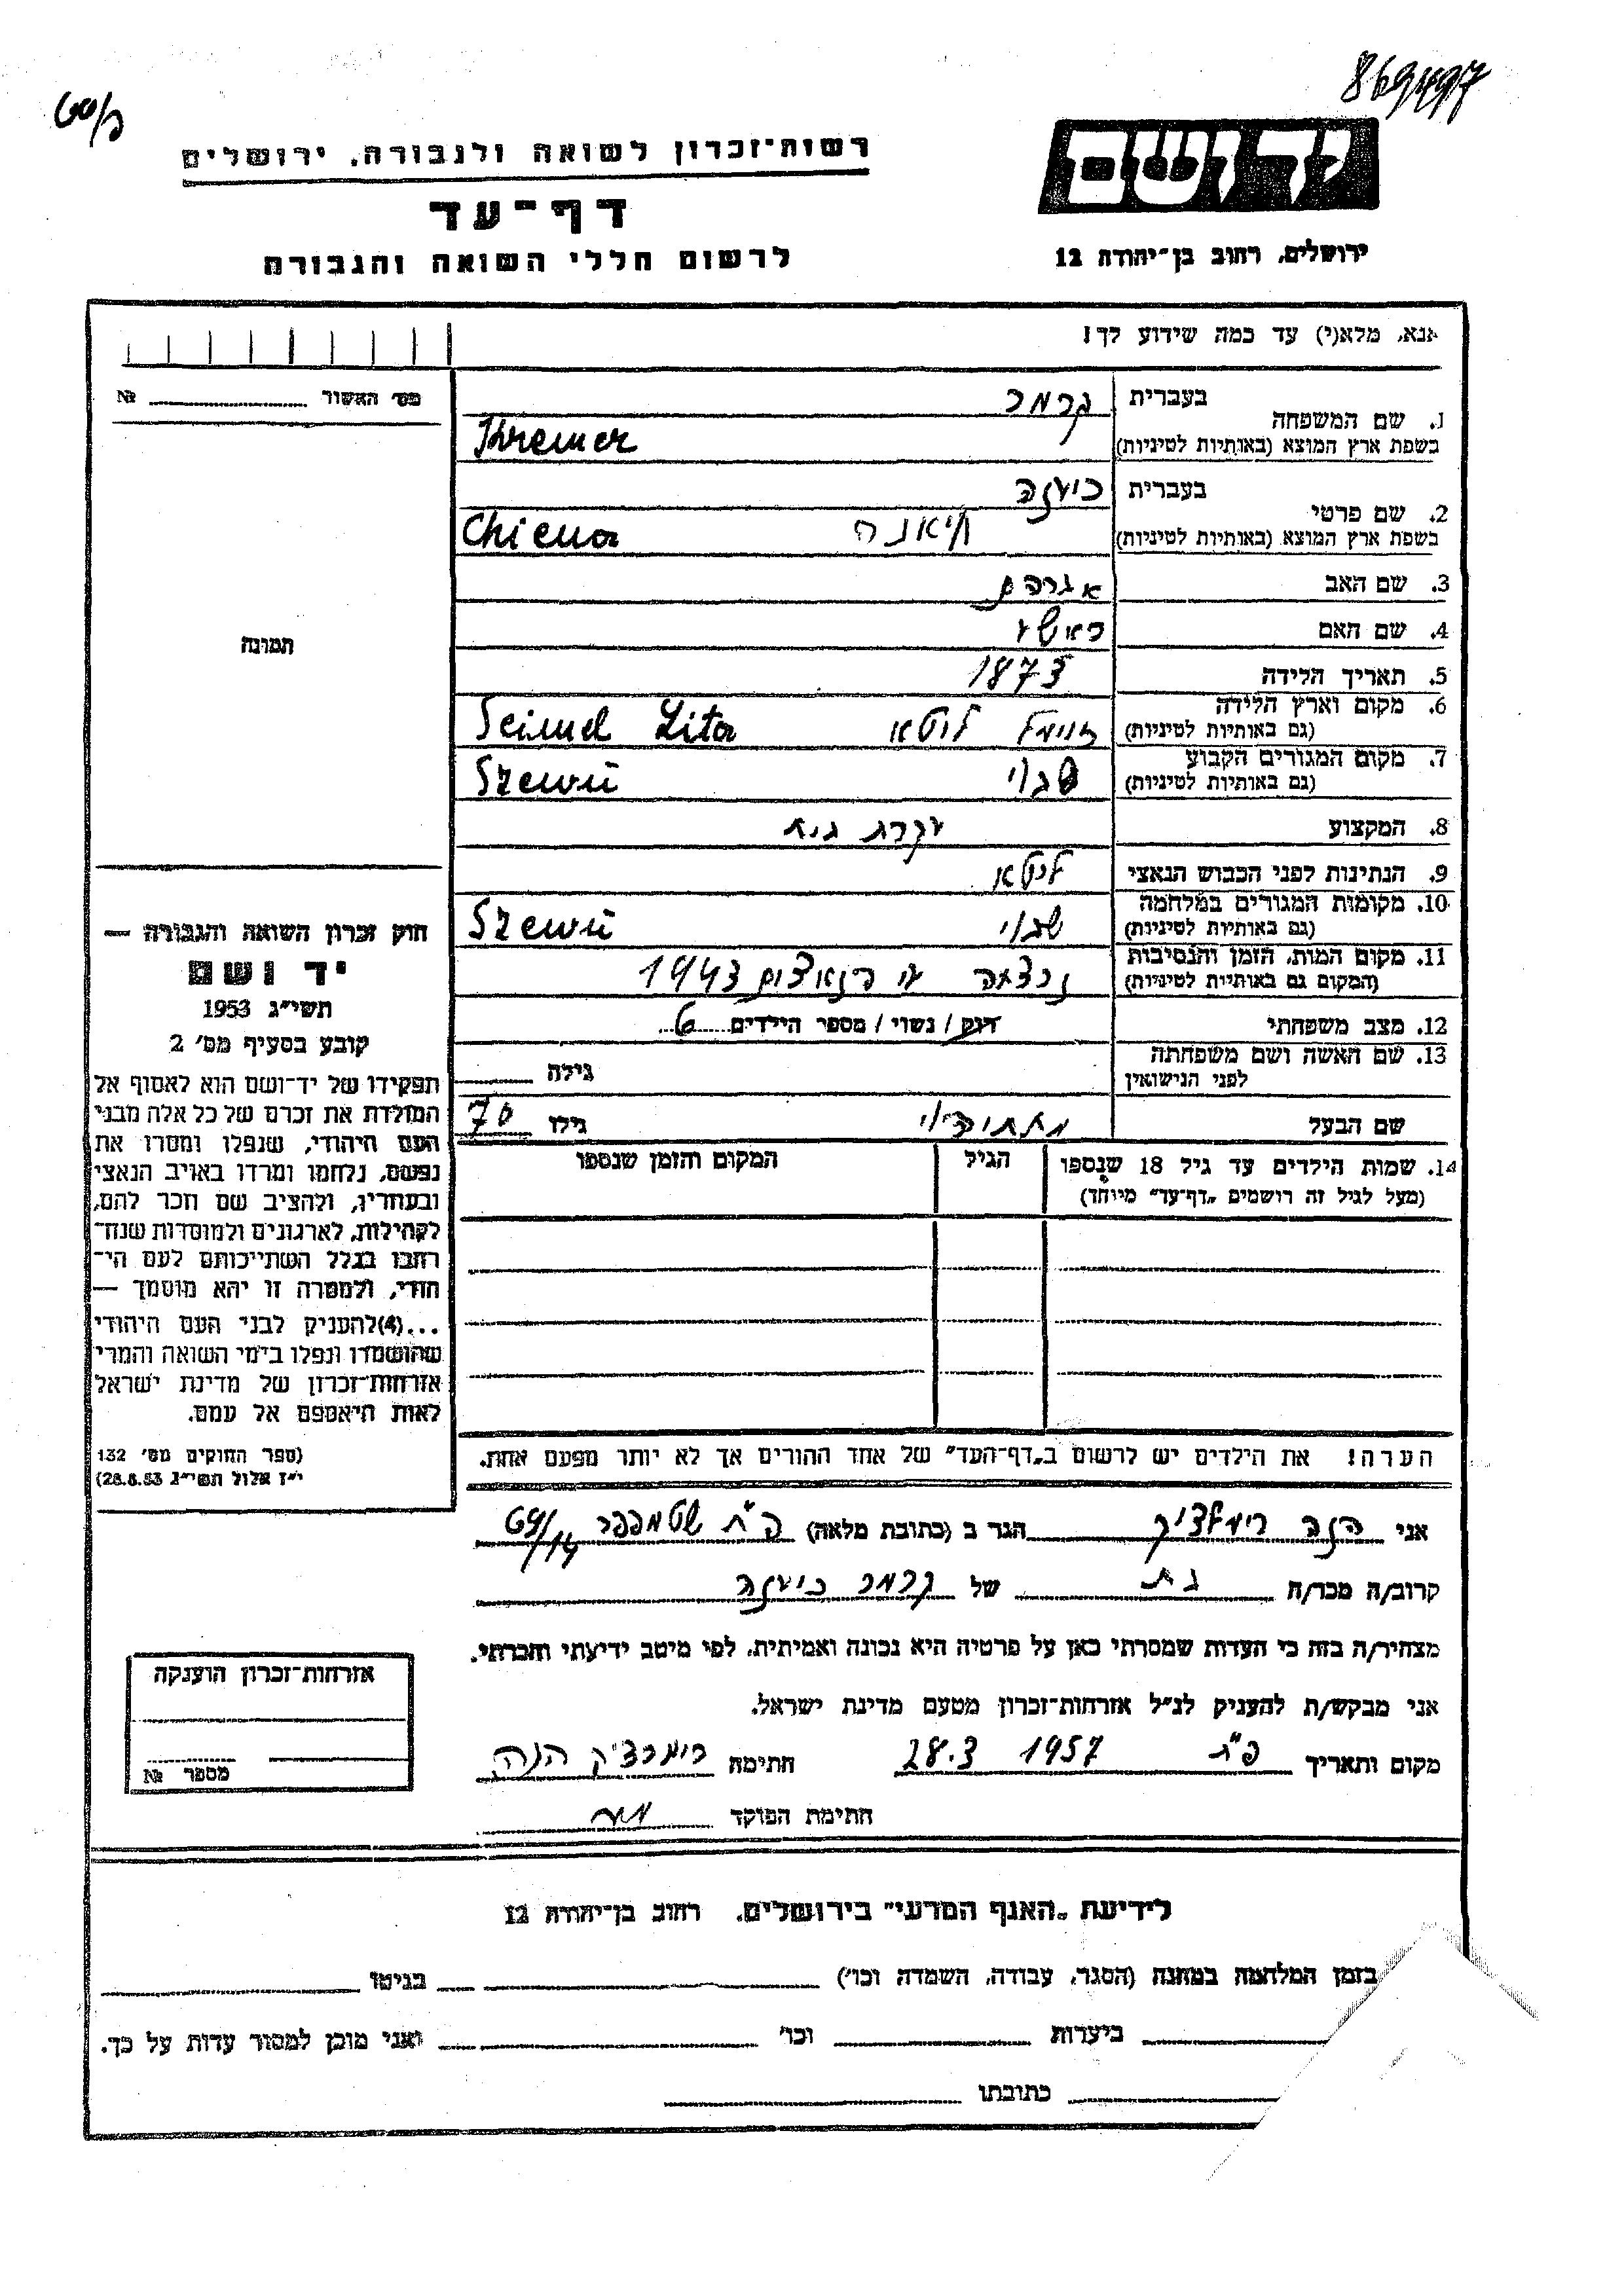 869497
60/כ
יד ושם
רשות־זכרון לשואה ולגבורה, ירושלים
דף־עד
לרשום חללי השואה והגבורה
ירושלים, רחוב בן־יהודה 12
אנא, מלא(י) עד כמה שידוע לך!
מס׳ האשור № 
1. שם המשפחה בעברית קרמר
בשפת ארץ המוצא (באותיות לטיניות) Kremer
2. שם פרטי בעברית
בשפת ארץ המוצא (באותיות לטיניות) Chiena
3. שם האב אברהם
4. שם האם
5. תאריך הלידה 1873
6. מקום וארץ הלידה
(גם באותיות לטיניות) ליטא Seimel Lita
7. מקום המגורים הקבוע
(גם באותיות לטיניות) Szewii
8. המקצוע עקרת בית
9. הנתינות לפני הכבוש הנאצי ליטא
10. מקומות המגורים במלחמה
(גם באותיות לטיניות) שבלי Szewii
11. מקום המות, הזמן והנסיבות
(המקום גם באותיות לטיניות) נרצחה ע״י הנאצים 1943
12. מצב משפחתי רווק / נשוי / מספר הילדים 6
13. שם האשה ושם משפחתה
לפני הנישואין גילה
שם הבעל מתתיהו גילו 70
14. שמות הילדים עד גיל 18 שנספו הגיל המקום והזמן שנספו
(מעל לגיל זה רושמים „דף־עד״ מיוחד)
הערה! את הילדים יש לרשום ב„דף־העד״ של אחד ההורים אך לא יותר מפעם אחת.
תמונה
חוק זכרון השואה והגבורה —
יד ושם
תשי״ג 1953
קובע בסעיף מס׳ 2
תפקידו של יד־ושם הוא לאסוף אל
המולדת את זכרם של כל אלה מבני
העם היהודי, שנפלו ומסרו את
נפשם, נלחמו ומרדו באויב הנאצי
ובעוזריו, ולהציב שם וזכר להם,
לקהילות, לארגונים ולמוסדות שנח־
רבו בגלל השתייכותם לעם הי־
הודי, ולמטרה זו יהא מוסמך —
...(4)להעניק לבני העם היהודי
שהושמדו ונפלו בימי השואה והמרי
אזרחות־זכרון של מדינת ישראל
לאות היאספם אל עמם.
(ספר החוקים מס׳ 132
י״ז אלול תשי״ג 28.8.53)
אני חנה הגר ב (כתובת מלאה) פ״ת שטמפפר 64/14
קרוב/ה מכר/ה בת של קרמר
מצהיר/ה בזה כי העדות שמסרתי כאן על פרטיה היא נכונה ואמיתית, לפי מיטב ידיעתי והכרתי.
אני מבקש/ת להעניק לנ״ל אזרחות־זכרון מטעם מדינת ישראל.
מקום ותאריך פ״ת 28.3 1957 חתימה חנה
חתימת הפוקד
אזרחות־זכרון הוענקה
מספר №
לידיעת „האגף המדעי״ בירושלים, רחוב בן־יהודה 12
בזמן המלחמה במחנה (הסגר, עבודה, השמדה וכו׳) בגיטו
ביערות וכו׳ ואני מוכן למסור עדות על כך.
כתובתו